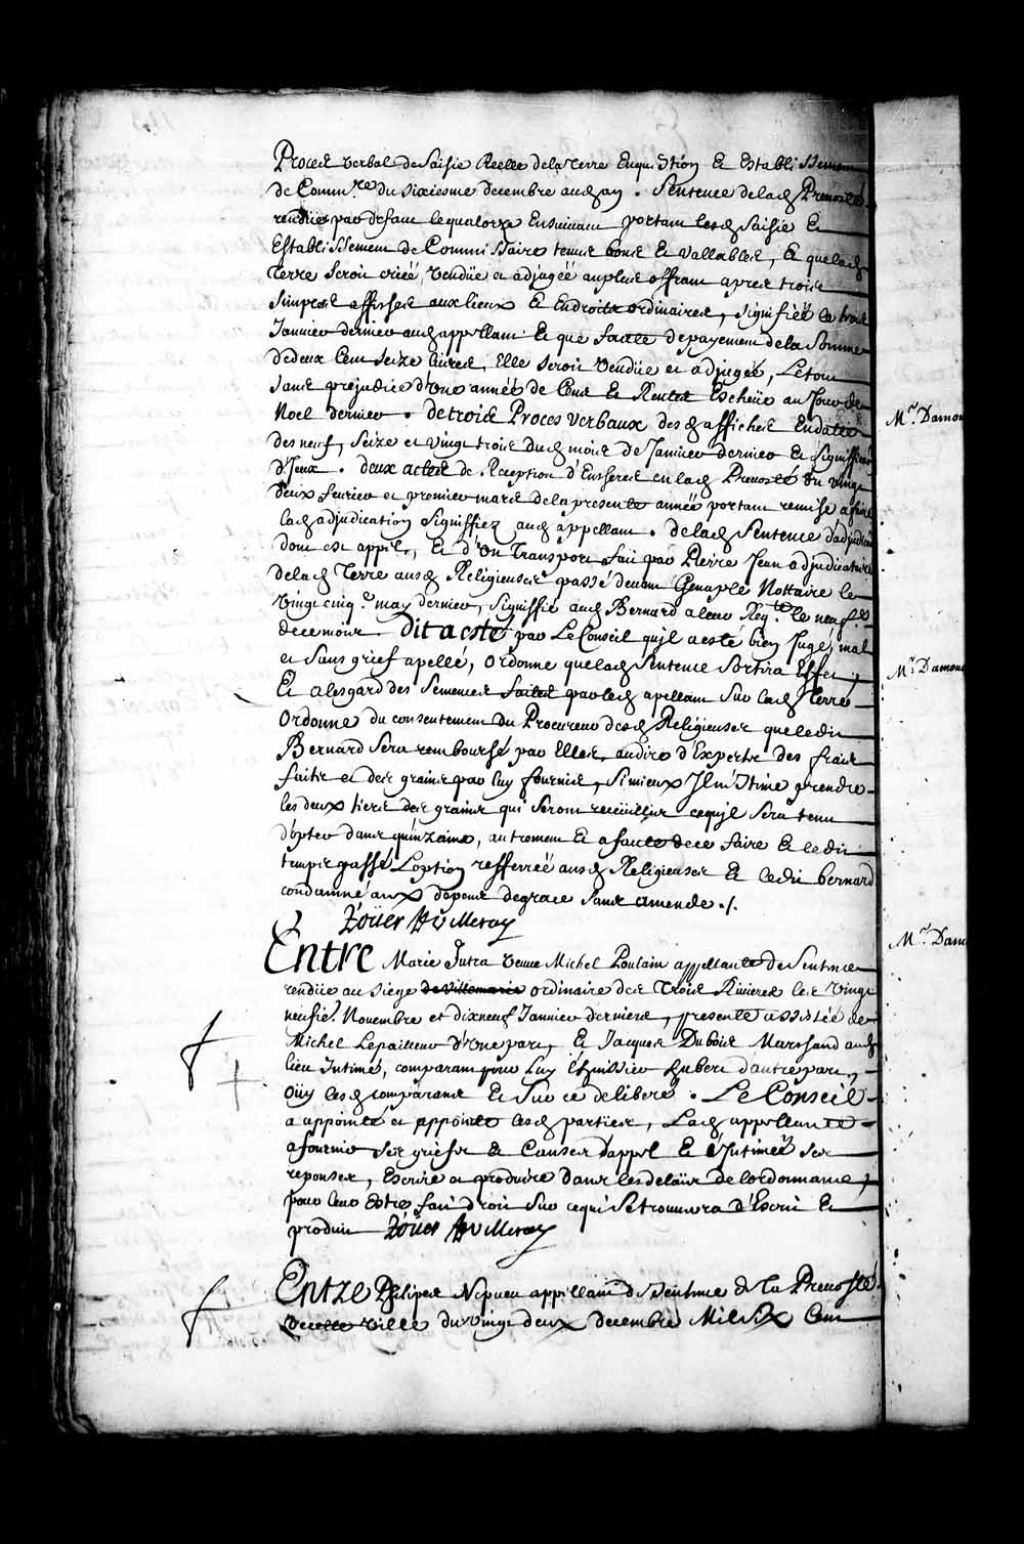 Proces verbal de Saisie Reelle de la terre En question Et Establissement
de Comm.re du sixiesme decembre aud an . Sentence de lad Prevosté
rendüe par defaut le quatorze Ensuivant portant lesd Saisie Et
Establissement de Commissaire tenus bons Et vallables, Et que lad
terre seroit criéé, vendüe et adjugéé au plus offrant apres trois
simples affiches aux lieux Et Endroits ordinaires, signifiéé le trois
Janvier dernier aud appellant Et que faute de payement de la somme
de deux Cent seize livres, Elle seroit vendüe et adjugéé, Le tout
sans prejudice d'Une annéé de Cens Et Rentes Escheüe au Jour de
Noel dernier . de trois Proces verbaux desd affiches En datte
des neuf, seize et vingt trois dud mois de Janvier dernier Et signiffiez
d'Iceux . deux actes de Reception d'Encheres en lad Prevosté du vingt
deux fevrier et premier mars de la presente annéé portant remise a faire
lad adjudication signiffiez aud appellant . de lad Sentence d'adjudication
dont est appel, Et d'Un Transport fait par Pierre Jean adjudicataire
de lad Terre ausd Religieuses passé devant Genaple Nottaire le
vingt cinq.e may dernier, signiffié aud Bernard a leur Req.te le neuf.e
de ce mois Dit a esté par Le Conseil qu'jl a esté bien Jugé, mal
et sans grief apellé, ordonne que lad Sentence sortira Effet,
Et a l'esgard des semences faites par led apellant sur lad terre
ordonne du consentement du Procureur desd Religieuses que ledit
Bernard sera remboursé par Elles, au dire d'Experts des frais
faits et des grains par luy fournis, si mieux Jl n'Ayme prendre
les deux tiers des grains qui seront recüeillis ce qu'jl sera tenu
d'opter dans quinzaine, autrement Et a faute de ce faire Et ledit
temps passé L'option refferéé ausd Religieuses Et ledit bernard
condamné aux depens de grace sans amende ./.
Roüer Villeray
Entre Marie Jutra veuve Michel Poulain appellante de Sentence
rendüe au Siege de Villemarie ordinaire des trois Rivieres les vingt
neufie. Novembre et dixneuf Janvier derniers, presente assistéé de
Michel Lepailleur d'Une part, Et Jacques Dubois Marchand aud
lieu Intimé, comparant pour Luy l'huissier Hubert d'autre part,
Oüy lesd comparans Et sur ce deliberé . Le Conseil
a appointé et appointe lesd parties, Lad appellante
a fournir ses griefs Et Causes d'appel Et l'Intimé ses
reponses, Escrire et produire dans les delais de l'ordonnance,
pour leur Estre fait droit sur ce qui se trouvera d'Escrit Et
produit Roüer Villeray
Entre Philipes Nepveu appellant de Sentence de la Prevosté
de cette ville du vingt deux decembre Mil Six Cent
M.r Damou
M.r Damou
M.r Dam